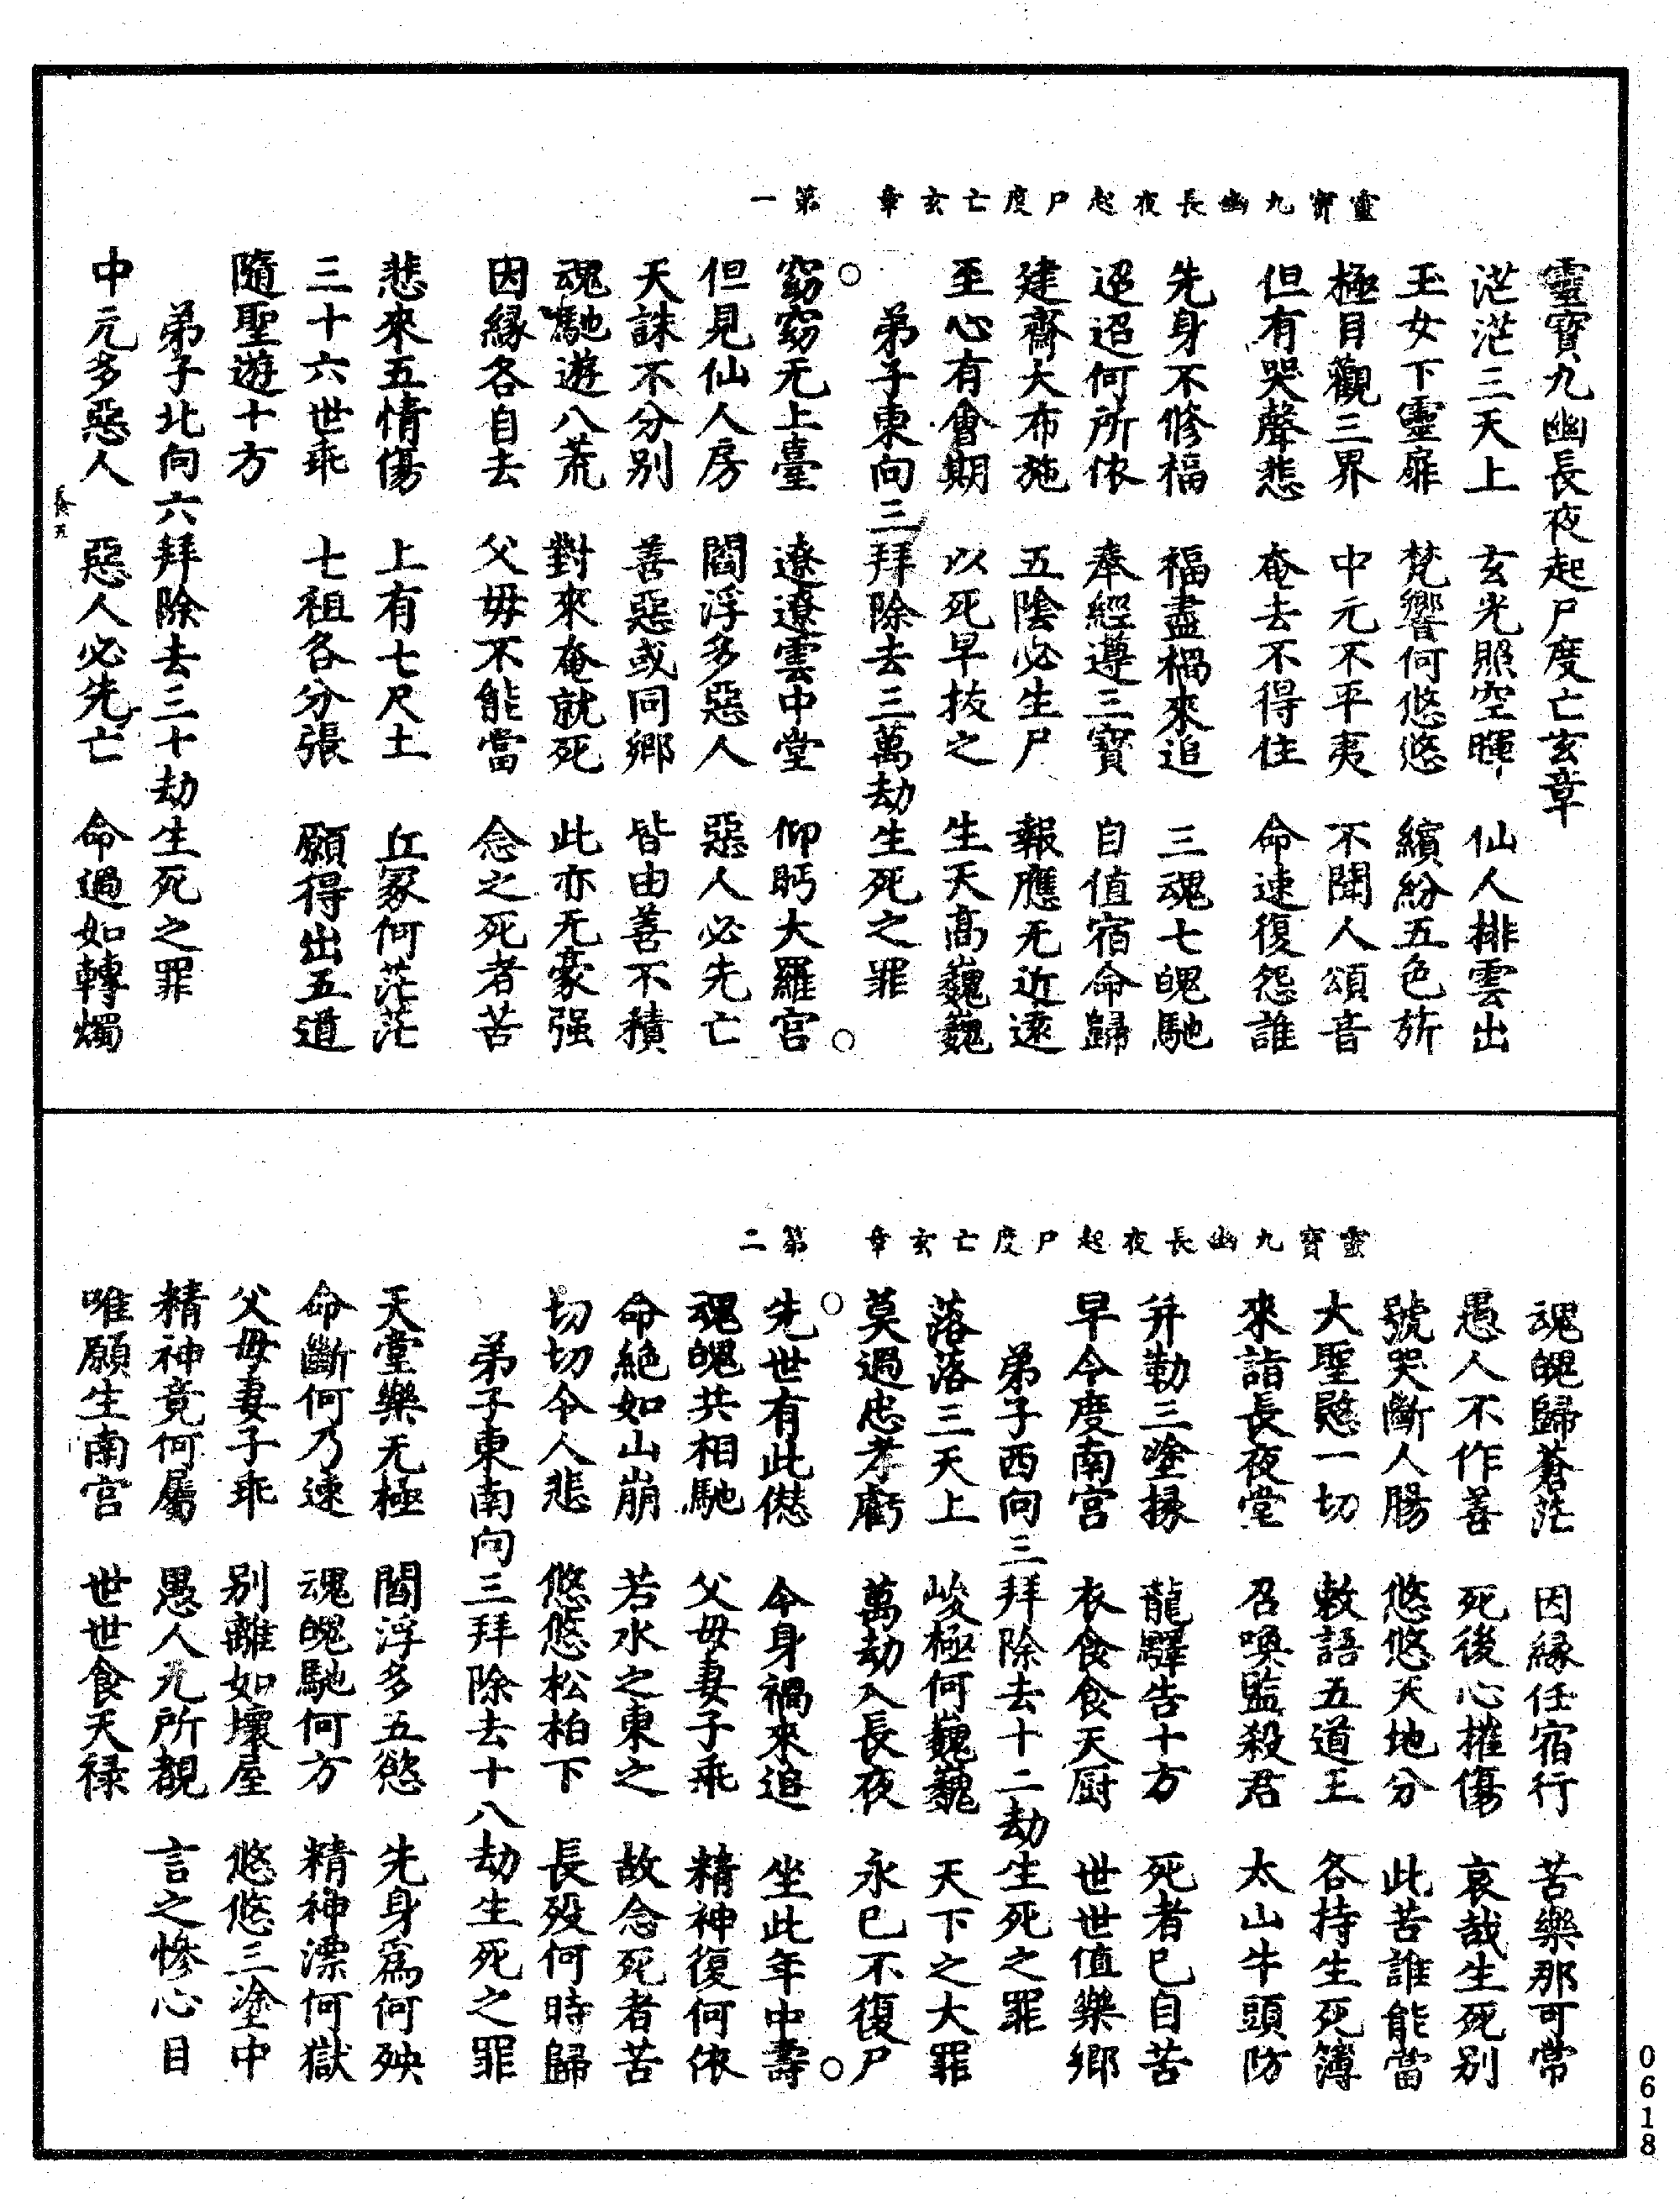 靈寶九幽長夜起尸度亡玄章 第一
靈寶九幽長夜起尸度亡玄章
茫茫三天上 玄光照空暉 仙人排雲出
玉女下靈扉 梵響何悠悠 繽紛五色旂
極目觀三界 中元不平夷 不聞人頌音
但有哭聲悲 奄去不得住 命速復怨誰
先身不修福 福盡禍來追 三魂七魄馳
迢迢何所依 奉經遵三寶 自值宿命歸
建齋大布施 五陰必生尸 報應无近遠
至心有會期 以死早拔之 生天高巍巍
弟子東向三拜除去三萬劫生死之罪
○ ○
窈窈无上臺 遼遼雲中堂 仰眄大羅宮
但見仙人房 閻浮多惡人 惡人必先亡
天誅不分別 善惡或同鄉 皆由善不積
魂馳遊八荒 對來奄就死 此亦无豪强
因緣各自去 父母不能當 念之死者苦
悲來五情傷 上有七尺土 丘冢何茫茫
三十六世乖 七祖各分張 願得出五道
隨聖遊十方
弟子北向六拜除去三十劫生死之罪
中元多惡人 惡人必先亡 命過如轉燭
靈寶九幽長夜起尸度亡玄章 第二
魂魄歸蒼茫 因緣任宿行 苦樂那可常
愚人不作善 死後心摧傷 哀哉生死別
號哭斷人腸 悠悠天地分 此苦誰能當
大聖愍一切 敕語五道王 各持生死簿
來詣長夜堂 召喚監殺君 太山牛頭防
并勒三塗掾 龍驛告十方 死者已自苦
早令度南宮 衣食食天厨 世世值樂鄉
弟子西向三拜除去十二劫生死之罪
落落三天上 峻極何巍巍 天下之大罪
莫過忠孝虧 萬劫入長夜 永已不復尸
○ ○
先世有此僁 今身禍來追 坐此年中壽
魂魄共相馳 父母妻子乖 精神復何依
命絕如山崩 若水之東之 故念死者苦
切切令人悲 悠悠松柏下 長歿何時歸
弟子東南向三拜除去十八劫生死之罪
天堂樂无極 閻浮多五慾 先身爲何殃
命斷何乃速 魂魄馳何方 精神漂何獄
父母妻子乖 別離如壞屋 悠悠三塗中
精神竟何屬 愚人无所覩 言之慘心目
唯願生南宮 世世食天祿
0618